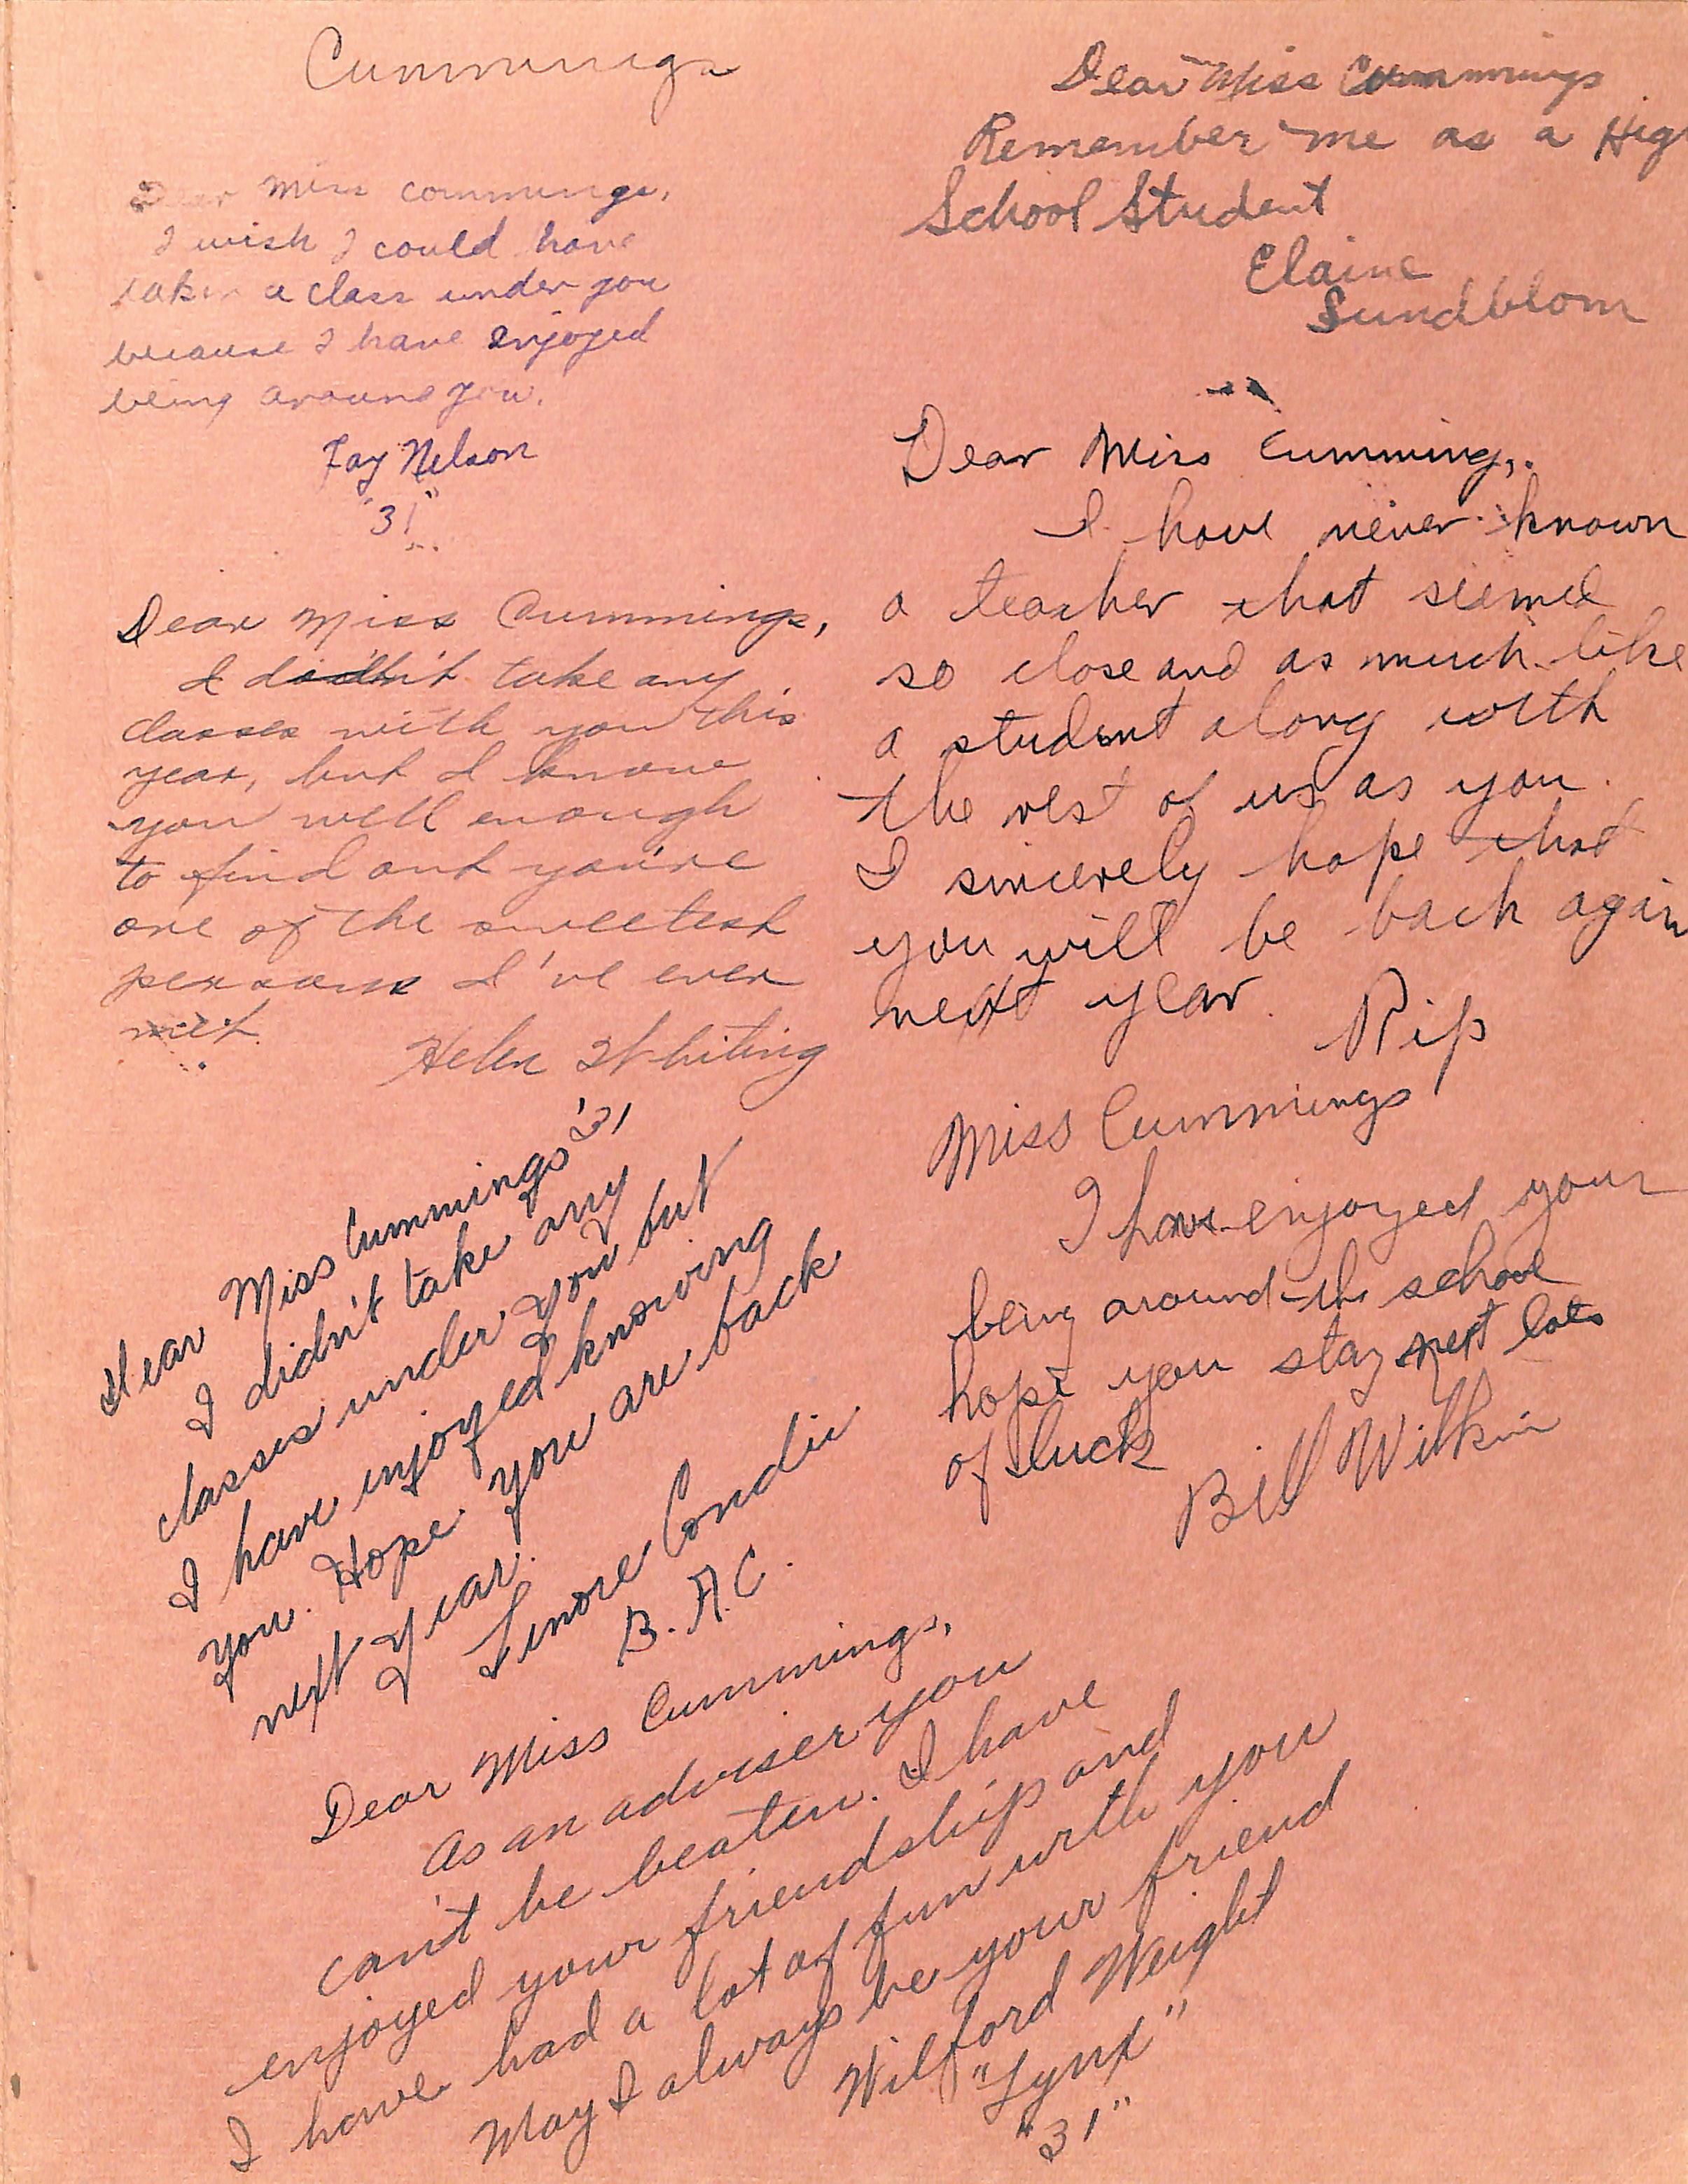 Cummings
Dear Miss Commings,
I wish I could have
taken a class under you
because I have enjoyed
being around you.
Fay Nelson
"31"
Dear Miss Cummings,
I didn't take any
classes with you this
year, but I know
you well enough
to find out you're
one of the sweetest
persons I've ever
met.
Helen Whiting
'31
Dear Miss Cummings
I didn't take any
classes under you but
I have enjoyed knowing
you. Hope you are back
next year.
Lenore Condie
B.A.C.
Dear Miss Cummings,
As an adviser you
can't be beaten. I have
enjoyed your friendship and
I have had a lot of fun with you
May I always be your friend
Wilford Weight
"Lynx"
"31"
Dear Miss Cummings
Remember me as a Hig
School Student
Elaine
Sundblom
Dear Miss Cumming,.
I have never known
a teacher that seemed
so close and as much like
a student along with
the rest of us as you.
I sincerely hope that
you will be back again
next year.
Rip
Miss Cummings
I have enjoyed your
being around the school
hope you stay next lots
of luck
Bill Wilkin